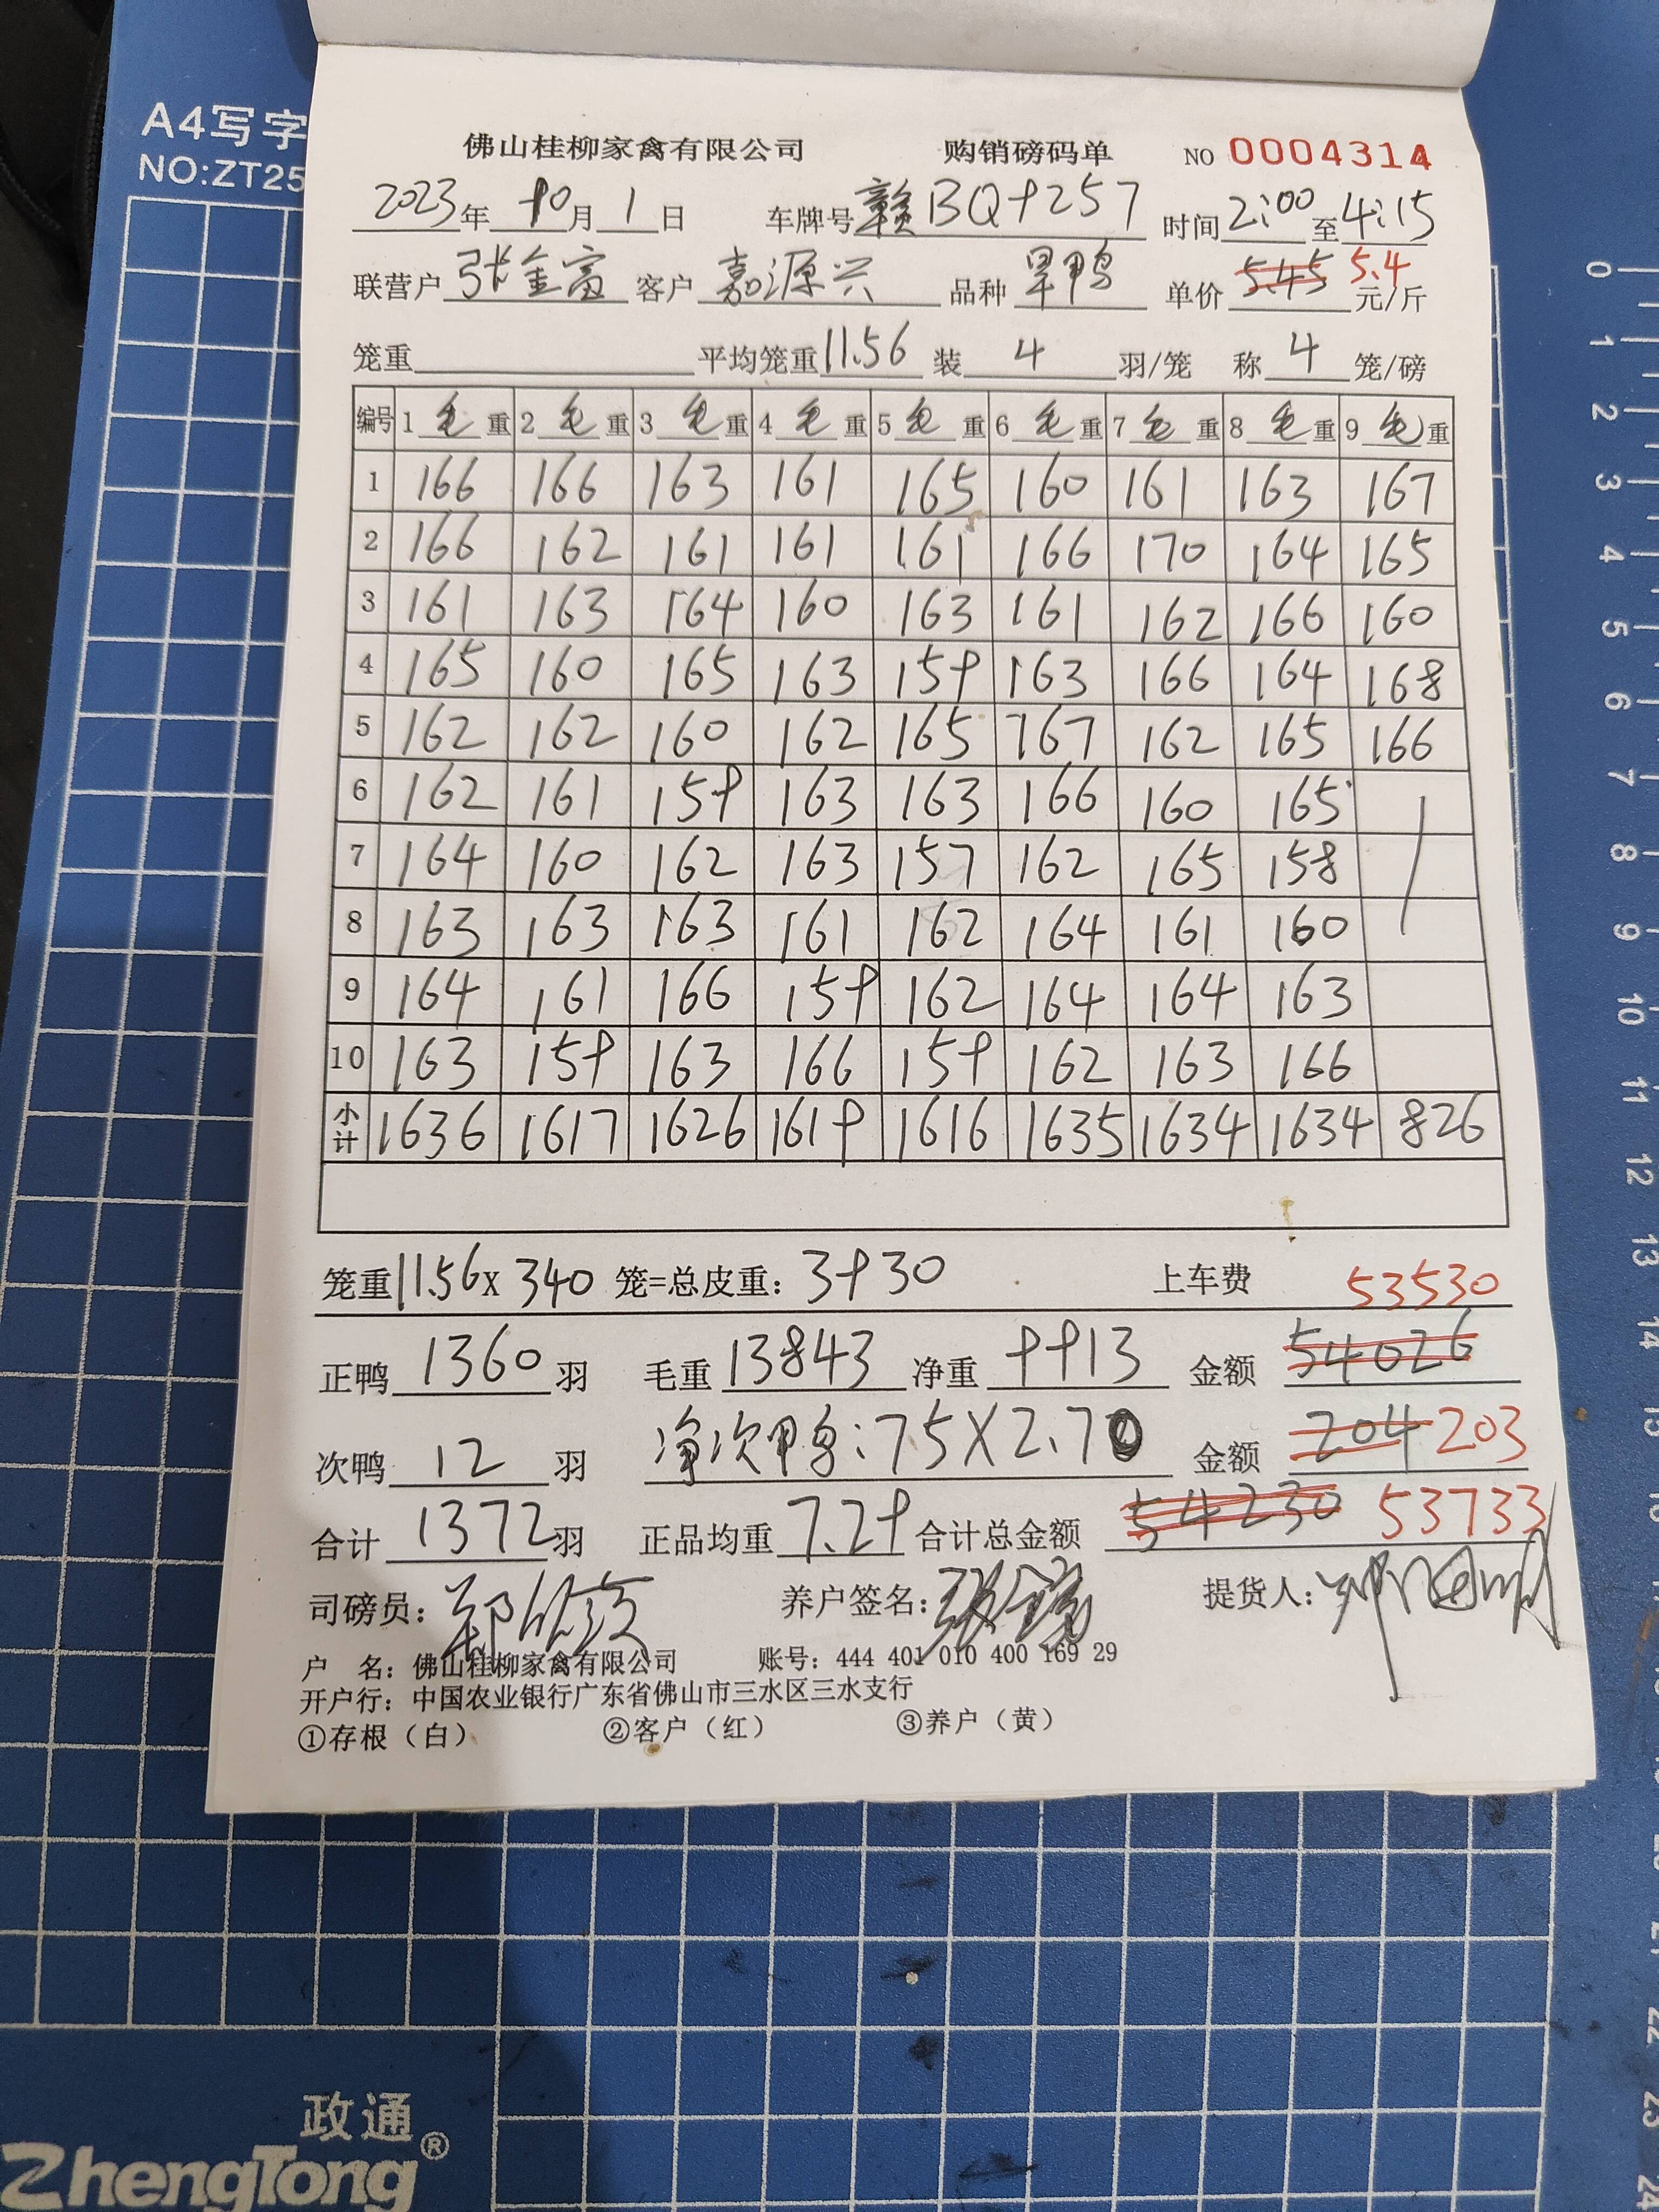 A4写字
NO:ZT25
佛山桂柳家禽有限公司 购销磅码单 NO 0004314
2023年 10月 1日 车牌号 赣BQ9257 时间 2:00 至 4:15
联营户 张金富 客户 嘉源兴 品种 旱鸭 单价 5.45 5.4 元/斤
笼重 平均笼重 11.56 装 4 羽/笼 称 4 笼/磅
编号 1 毛重 2 毛重 3 毛重 4 毛重 5 毛重 6 毛重 7 毛重 8 毛重 9 毛重
1 166 166 163 161 165 160 161 163 167
2 166 162 161 161 161 166 170 164 165
3 161 163 164 160 163 161 162 166 160
4 165 160 165 163 159 163 166 164 168
5 162 162 160 162 165 167 162 165 166
6 162 161 159 163 163 166 160 165
7 164 160 162 163 157 162 165 158
8 163 163 163 161 162 164 161 160
9 164 161 166 159 162 164 164 163
10 163 159 163 166 159 162 163 166
小计 1636 1617 1626 1619 1616 1635 1634 1634 826
笼重 11.56 X 340 笼=总皮重: 3930 上车费 53530
正鸭 1360 羽 毛重 13843 净重 9913 金额 54026
次鸭 12 羽 净次鸭:75X2.70 金额 204 203
合计 1372 羽 正品均重 7.29 合计总金额 54230 53733
司磅员: 养户签名: 提货人:
户 名: 佛山桂柳家禽有限公司 账号: 444 401 010 400 169 29
开户行: 中国农业银行广东省佛山市三水区三水支行
①存根（白） ②客户（红） ③养户（黄）
0
1
2
3
4
5
6
7
8
9
10
11
12
13
14
15
22
23
24
政通
ZhengTong®